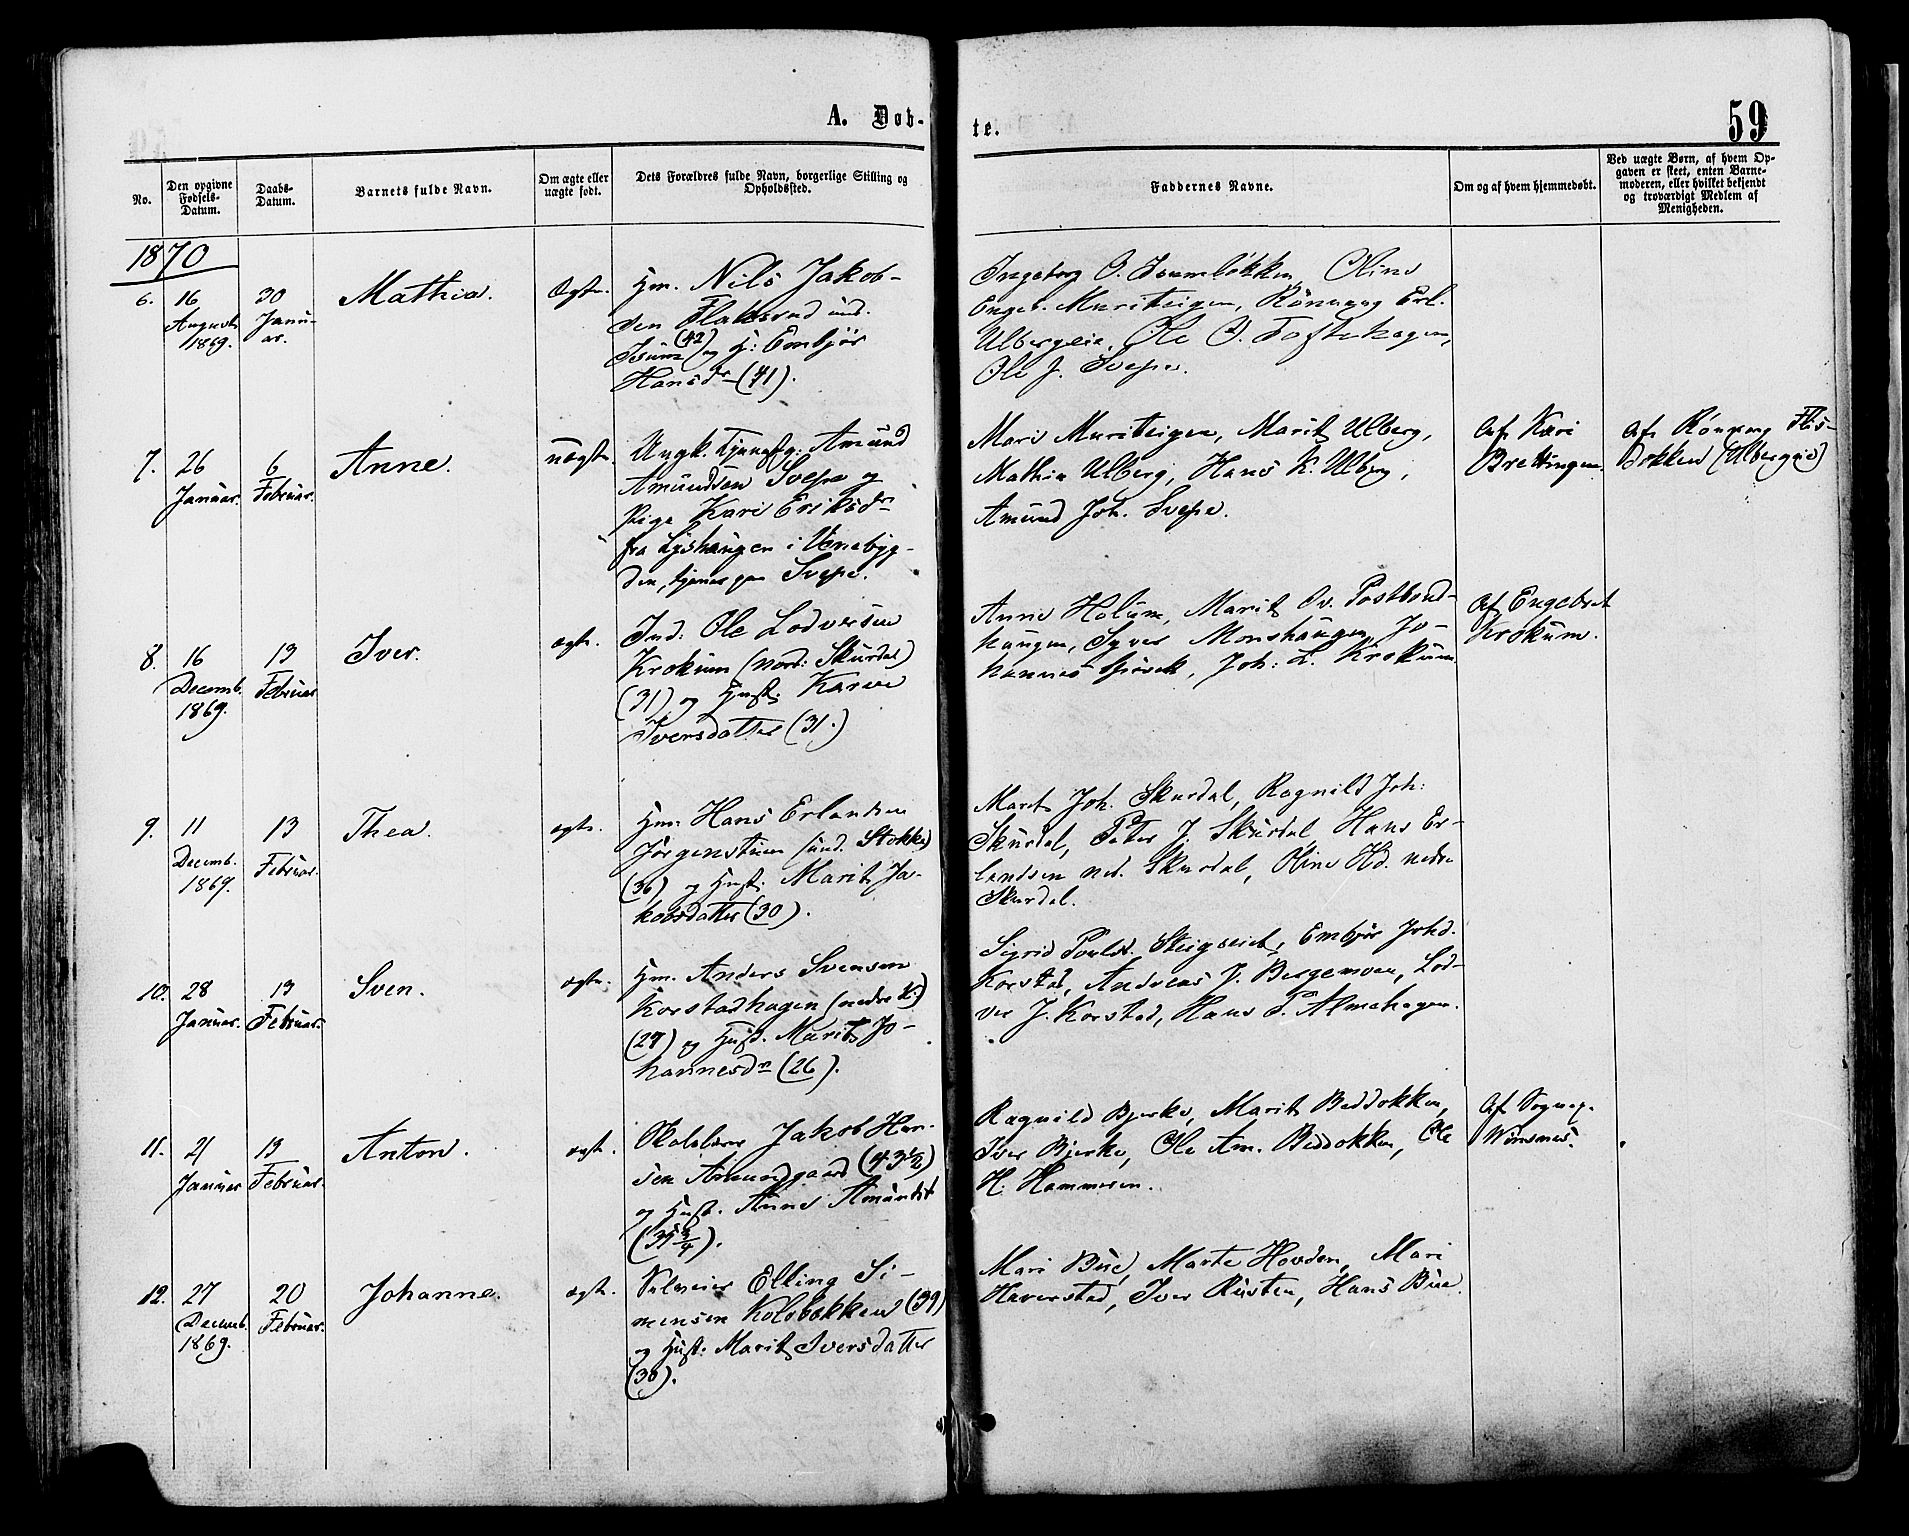 A. Døb-
te.
59
No.
Den opgivne Fødsels-Datum.
Daabs-Datum.
Barnets fulde Navn.
Om ægte eller uægte født.
Dets Forældres fulde Navn, borgerlige Stilling og Opholdssted.
Faddernes Navne.
Om og af hvem hjemmedøbt.
Ved uægte Børn, af hvem Opgaven er skeet, enten Barnemoderen, eller hvilket bekjendt og troværdigt Medlem af Menigheden.
1870
6.
16
August
1869.
30
Janu-
ar.
Mathia.
Ægte.
Hm. Nils Jakob-
sen und.
Isum (42) og H: Embjør
Hansdr (41).
Ingeborg O. Oline
Engeb. Muriteigen, Rønnaug Erl.
Ulbergeie, Ole O. Toftehagen,
Ole J. Svepe.
7.
26
Januar.
6
Februar.
Anne.
uægte.
Ungk. Tjenestg: Amund
Amundsen Svepe og
Pige Kari Eriksdr
fra Lyshaugen i Venebyg-
den, tjener paa Svepe.
Mari Muriteigen, Marit Ulberg,
Mathia Ulberg, Hans K. Ulberg,
Amund Joh. Svepe.
Af Kari
Brettingen.
Af Rønnaug
(Ulbergeie)
8.
16
Decemb.
1869.
13
Februar
Iver.
ægte.
Ind: Ole Lodversen
Krokum (nord: Skurdal)
(31) og Hust: Karen
Iversdatter (31.)
Anne Holum, Marit Ov.
haugen, Syver Monshaugen, Jo-
hannes Joh: L. Krokum
Af Engebret
Krokum.
9.
11
Decemb.
1869.
13
Februar.
Thea.
ægte.
Hm. Hans Erlandsen
Jørgenstuen (und. Stokke)
(36) og Hust: Marit Ja-
kobsdatter (30).
Marit Joh. Skurdal, Ragnild Joh:
Skurdal, Peter J. Skurdal, Hans Er-
landsen ned. Skurdal, Oline Hd. nedre
Skurdal.
10.
28
Januar.
13
Februar.
Sven.
ægte.
Hm. Anders Svensen
Korstadhagen (nedre K:)
(27) og Hust. Marit Jo-
hannesdr (26).
Sigrid Pouls. Embjør Johd.
Korstad, Andreas J. Bergemoen, Lod-
ver J. Korstad, Hans P. Almehagen.
11.
21
Januar
13
Februar.
Anton.
ægte.
Skolelærer Jakob Han-
sen Amundgaard (43½)
og Hust. Anne Amundsd
(35¾).
Ragnild Bjerke, Marit Beddokken,
Iver Bjerke, Ole Am. Beddokken, Ole
H: Hammeren.
Af Sognep.
12.
27
Decemb.
1869.
20
Februar.
Johanne.
ægte.
Selveier Elling Si-
mensen Kolobækken (39)
og Hust: Marit Iversdatter
(30).
Mari Bue, Marte Hovden, Mari
Haverstad, Iver Rusten, Hans Bue.